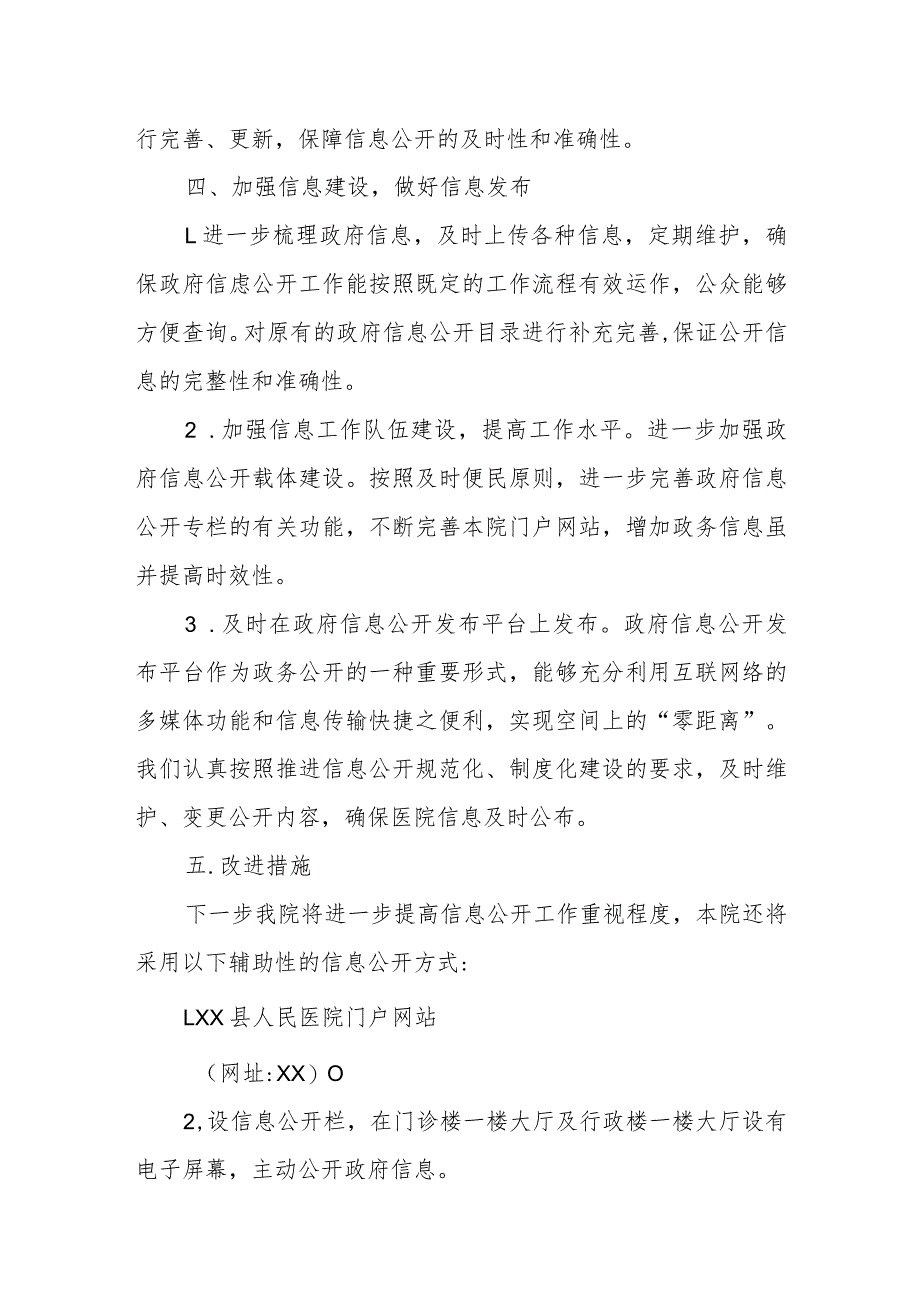 行完善、更新，保障信息公开的及时性和准确性。
四、加强信息建设，做好信息发布
L进一步梳理政府信息，及时上传各种信息，定期维护，确
保政府信虑公开工作能按照既定的工作流程有效运作，公众能够
方便查询。对原有的政府信息公开目录进行补充完善,保证公开信
息的完整性和准确性。
2 .加强信息工作队伍建设，提高工作水平。进一步加强政
府信息公开载体建设。按照及时便民原则，进一步完善政府信息
公开专栏的有关功能，不断完善本院门户网站，增加政务信息虽
并提高时效性。
3 .及时在政府信息公开发布平台上发布。政府信息公开发
布平台作为政务公开的一种重要形式，能够充分利用互联网络的
多媒体功能和信息传输快捷之便利，实现空间上的“零距离”。
我们认真按照推进信息公开规范化、制度化建设的要求，及时维
护、变更公开内容，确保医院信息及时公布。
五.改进措施
下一步我院将进一步提高信息公开工作重视程度，本院还将
采用以下辅助性的信息公开方式:
LXX县人民医院门户网站
（网址:XX）O
2,设信息公开栏，在门诊楼一楼大厅及行政楼一楼大厅设有
电子屏幕，主动公开政府信息。